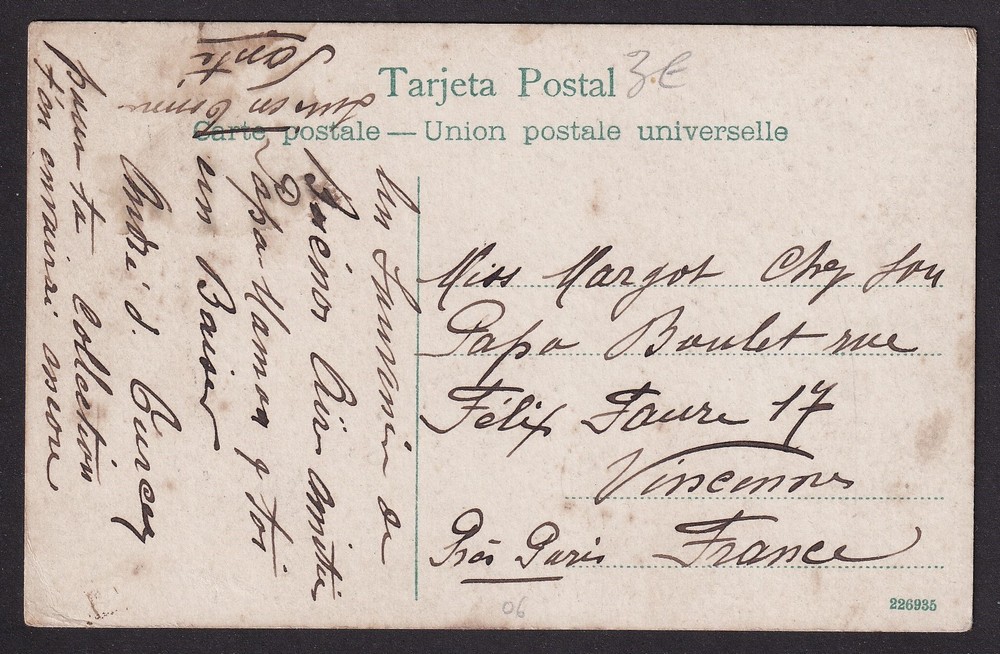 Tarjeta Postal
3 €
Carte postale — Union postale universelle
Un Souvenir de
Buénos Aires amitié
a Papa Maman & toi
un Baiser
Santé
André J.
pour ta Collection
t'en enverrai encore
Miss Margot Chez Son
Papa Boulet rue
Félix Faure 17
Vincennes
Près Paris France
06
226935